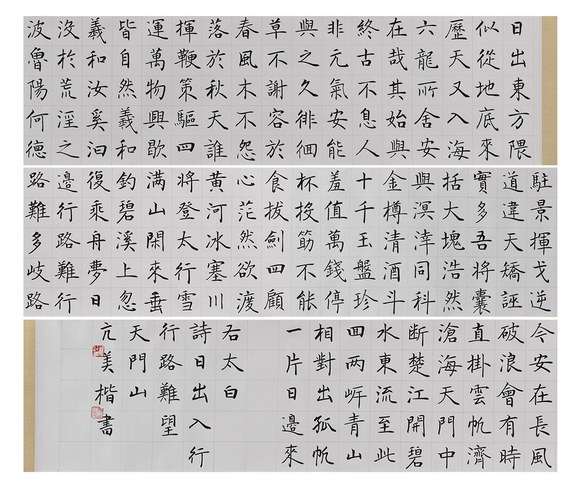 日出東方隈
似從地底來
歷天又入海
六龍所舍安
在哉其始與
終古不息人
非元氣安能
與之久徘徊
草不謝容於
春風木不怨
落於秋天誰
揮鞭策驅四
運萬物興歇
皆自然義和
義和汝奚汩
沒於荒淫之
波魯陽何德
駐景揮戈逆
道違天矯誣
實多吾將囊
括大塊浩然
與溟涬同科
金樽清酒斗
十千玉盤珍
羞值萬錢停
杯投筯不能
食拔劍四顧
心茫然欲渡
黃河冰塞川
將登太行雪
滿山閑來垂
釣碧溪上忽
復乘舟夢日
邊行路難行
路難多岐路
今安在長風
破浪會有時
直掛雲帆濟
滄海天門中
斷楚江開碧
水東流至此
回兩岸青山
相對出孤帆
一片日邊來
右太白
詩日出入行
行路難望
天門山
亢美楷書